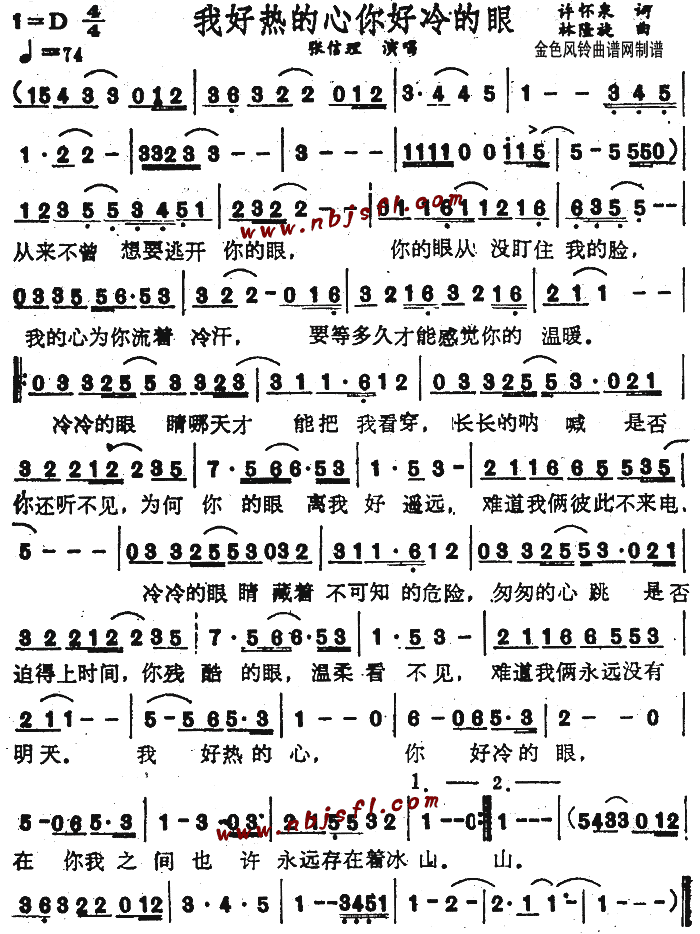 1=D 4/4 我好热的心你好冷的眼 许怀泉 词
♩=74 张信理 演唱 林隆旋 曲
金色风铃曲谱网制谱
(15433012 | 36322012 | 3·445 | 1--345
1·22- | 3323 3-- | 3--- | 111100i15 | 5-5550)
123553451 | 2322-- | 011611216 | 66355--
www.nbjsfl.com
从来不曾 想要逃开 你的眼, 你的眼从 没盯住 我的脸,
033556·53 | 322-016 | 32163216 | 211--
我的心为你流着 冷汗, 要等多久才能感觉你的 温暖。
033255 3323 | 311·612 | 0332553·021
冷冷的眼 睛哪天才 能把 我看穿, 长长的呐 喊 是否
322112235 | 7·566·53 | 1·53- | 2116655535
你还听不见,为何 你 的眼 离我 好 遥远, 难道我俩彼此不来电,
5--- | 0332553032 | 311·612 | 0332553·021
冷冷的眼 睛 藏着 不可知 的危险, 匆匆的心 跳 是否
322112235 | 7·566·53 | 1·53- | 21166553
迫得上时间,你残 酷 的眼, 温柔 看 不见, 难道我俩永远没有
211-- | 5-565·3 | 1--0 | 6-065·3 | 2--0
明天。 我 好热的 心, 你 好冷的 眼,
1. 2.
5-065·3 | 1-3-03· | 2·25532 | 1--0 :| 1-- | (5433012
www.nbjsfl.com
在 你我 之 间 也 许 永远存在着冰 山。 山。
363322012 | 3·4·5 | 1--3451 | 1-2- | 2·11· | 1---)